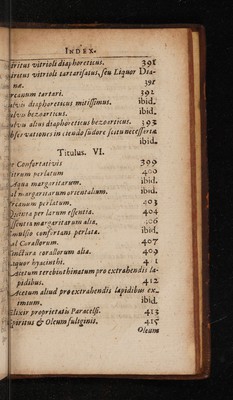 INDEX.
iritus vitrioli diaphoreticus. 391
iritus vitrioli tartarisatus, seu Liquor Dia-
næ. 391
rcanum tartari. 392
ulvis diaphoreticus mitissimus. ibid.
ulvis bezoarticus. ibid.
ulvis alius diaphoreticus bezoarticus. 393
bservationes in ciendo sudore scitu necessariæ
ibid.
Titulus. VI.
e Confortativis 399
itrum perlatum 400
Aqua margaritarum. ibid.
al margaritarum orientalium. ibid.
rcanum perlatum. 403
Quinta perlarum essentia. 404
ssentia margaritarum alia. 406
Emulsio confortans perlata. ibid.
al Corallorum. 407
inctura corallorum alia. 409
iquor hyacinthi. 411
Acetum terebinthinatum pro extrahendis la-
pidibus. 412
Acetum aliud pro extrahendis lapidibus ex-
imium. ibid.
Elixir proprietatis Paracelsi. 413
Spiritus & Oleum fuliginis. 415
Oleum